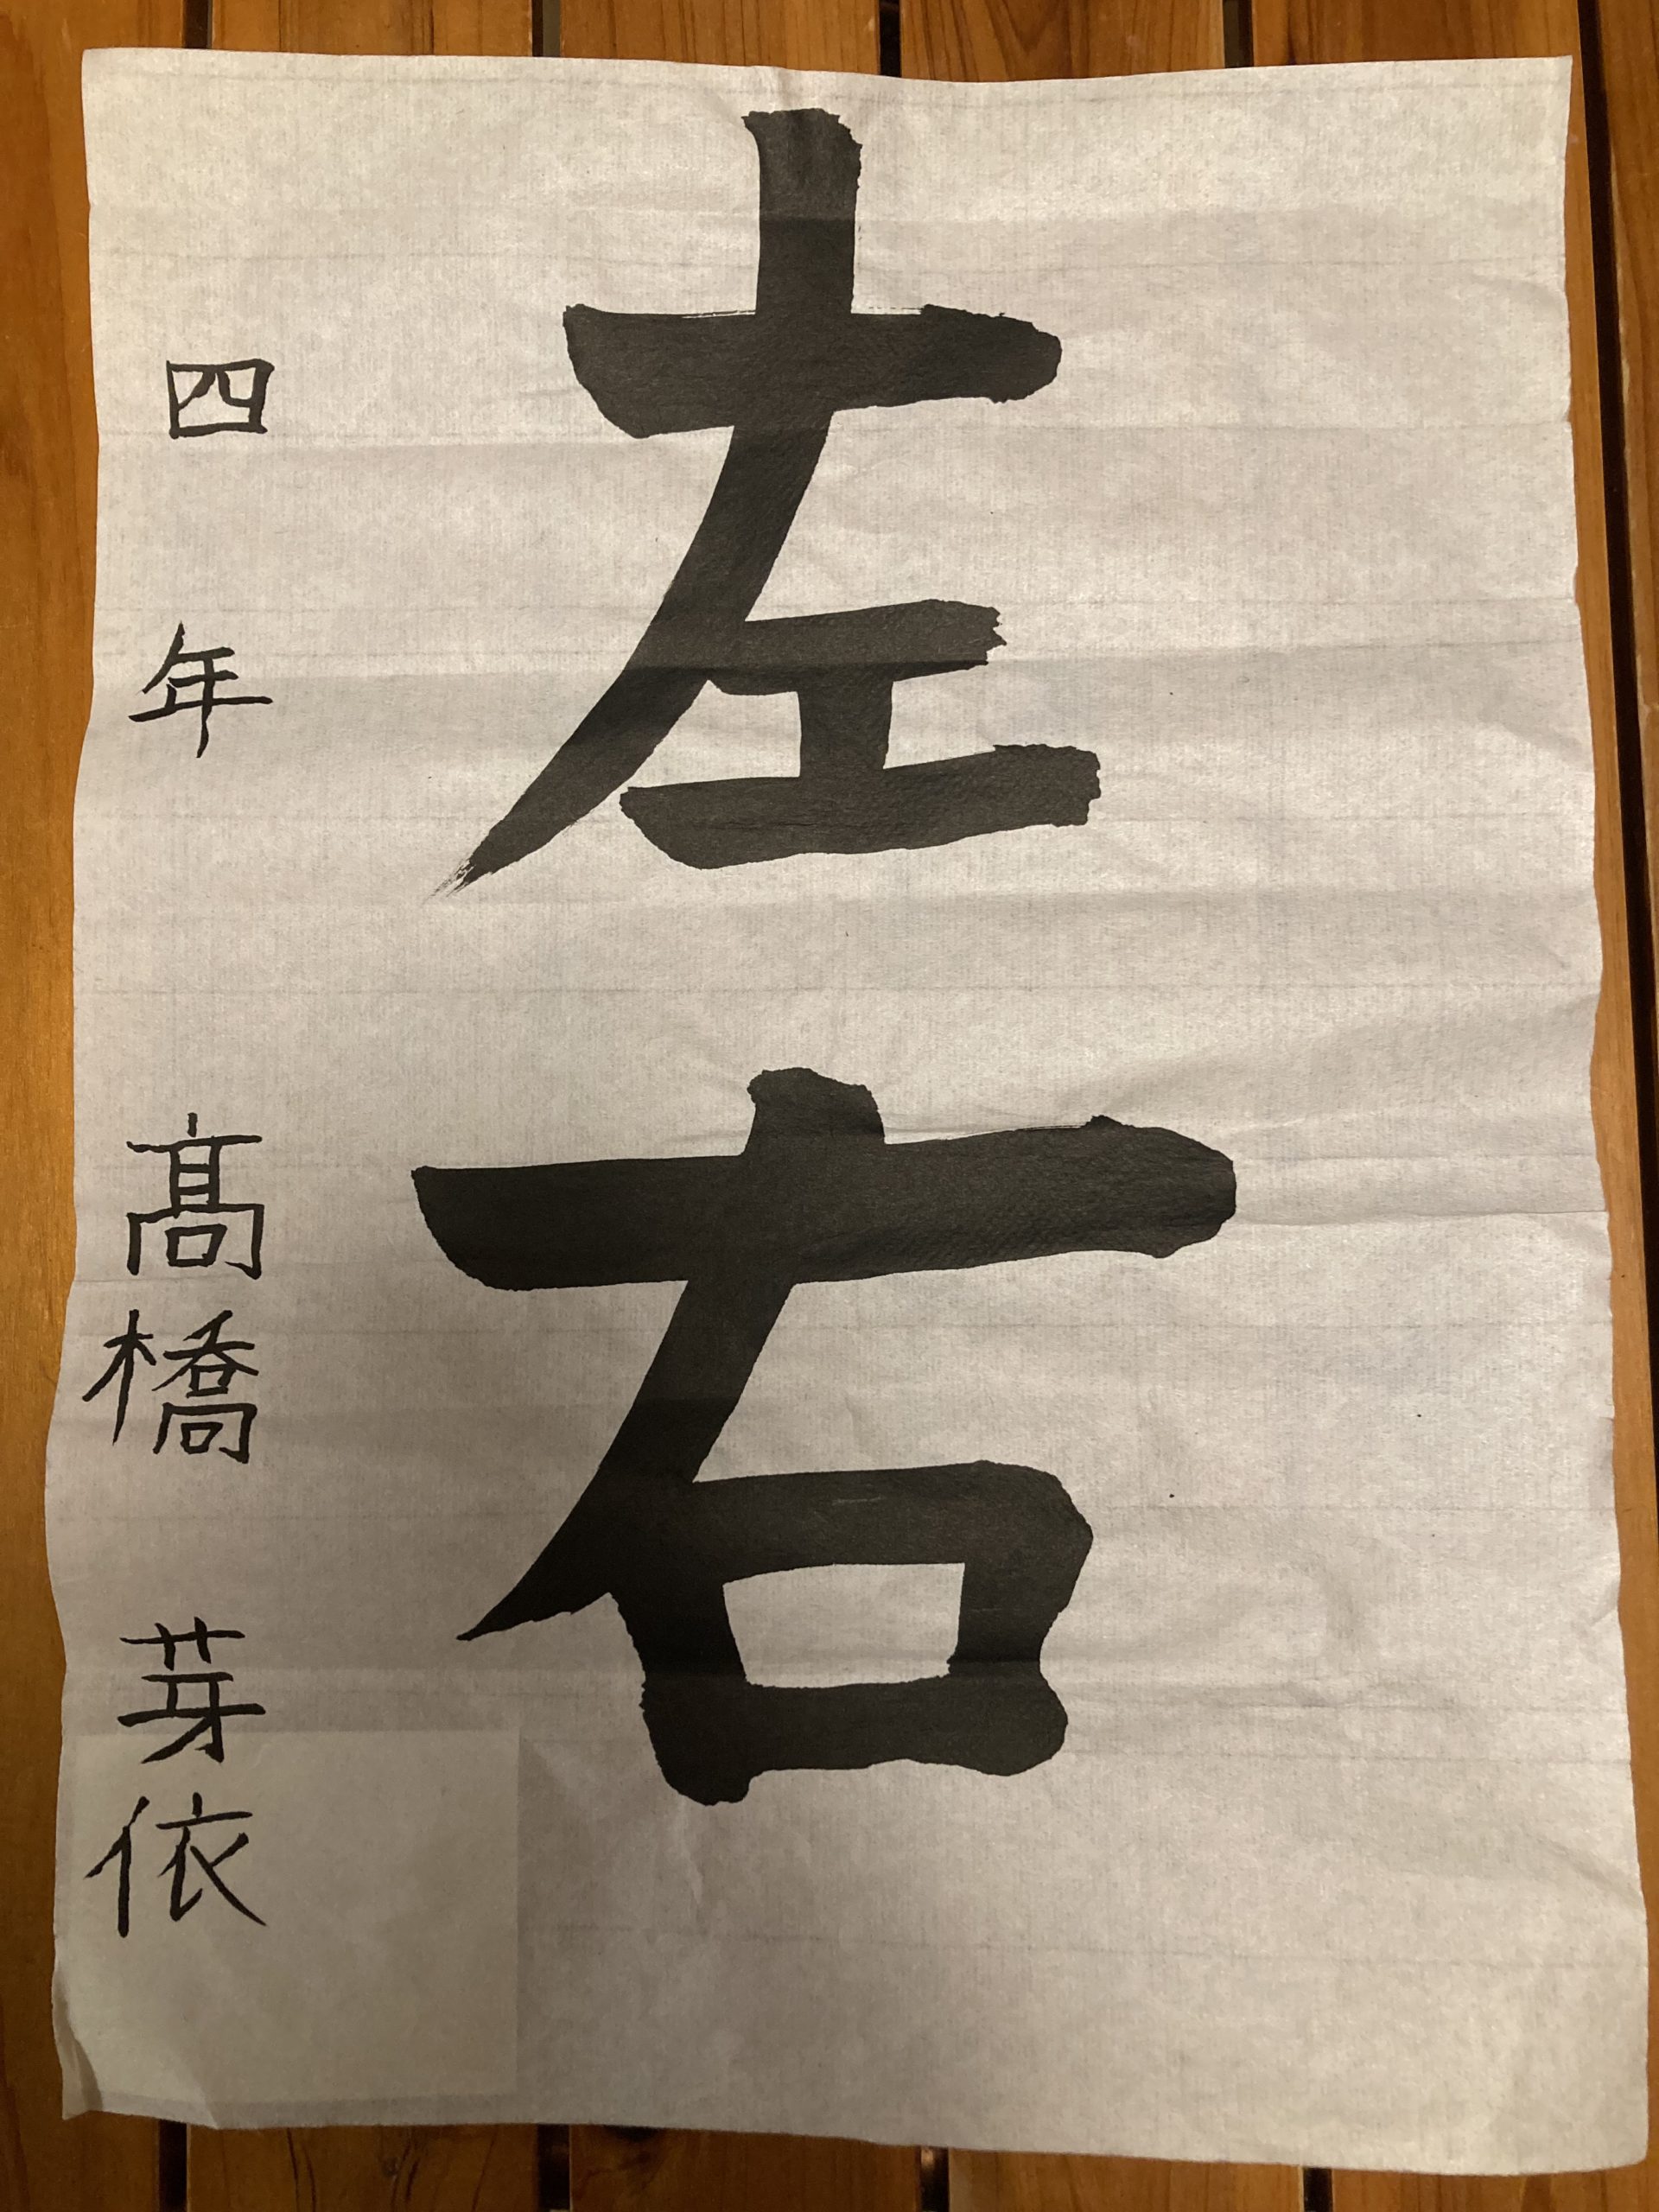 左右
四年 髙橋 芽依